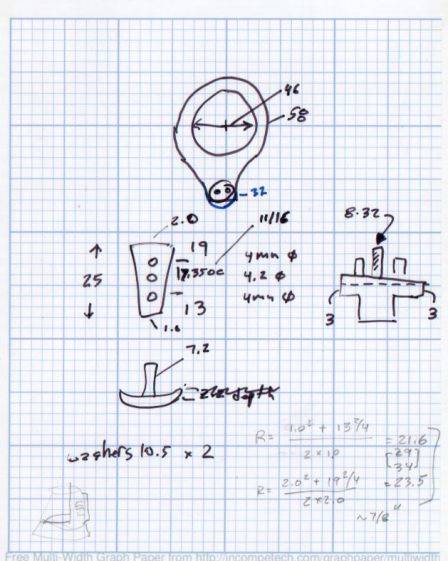 46
58
32
2.0
11/16
8.32
19
4mm φ
25
4.2 φ
13
4mm φ
3
3
1.6
7.2
washers 10.5 × 2
R = 1.0² + 13²/4 = 21.6
2 × 1.0
[29]
[34]
R = 2.0² + 19²/4 = 23.5
2 × 2.0
~7/8"
Free Multi-Width Graph Paper from http://incompetech.com/graphpaper/multiwidth